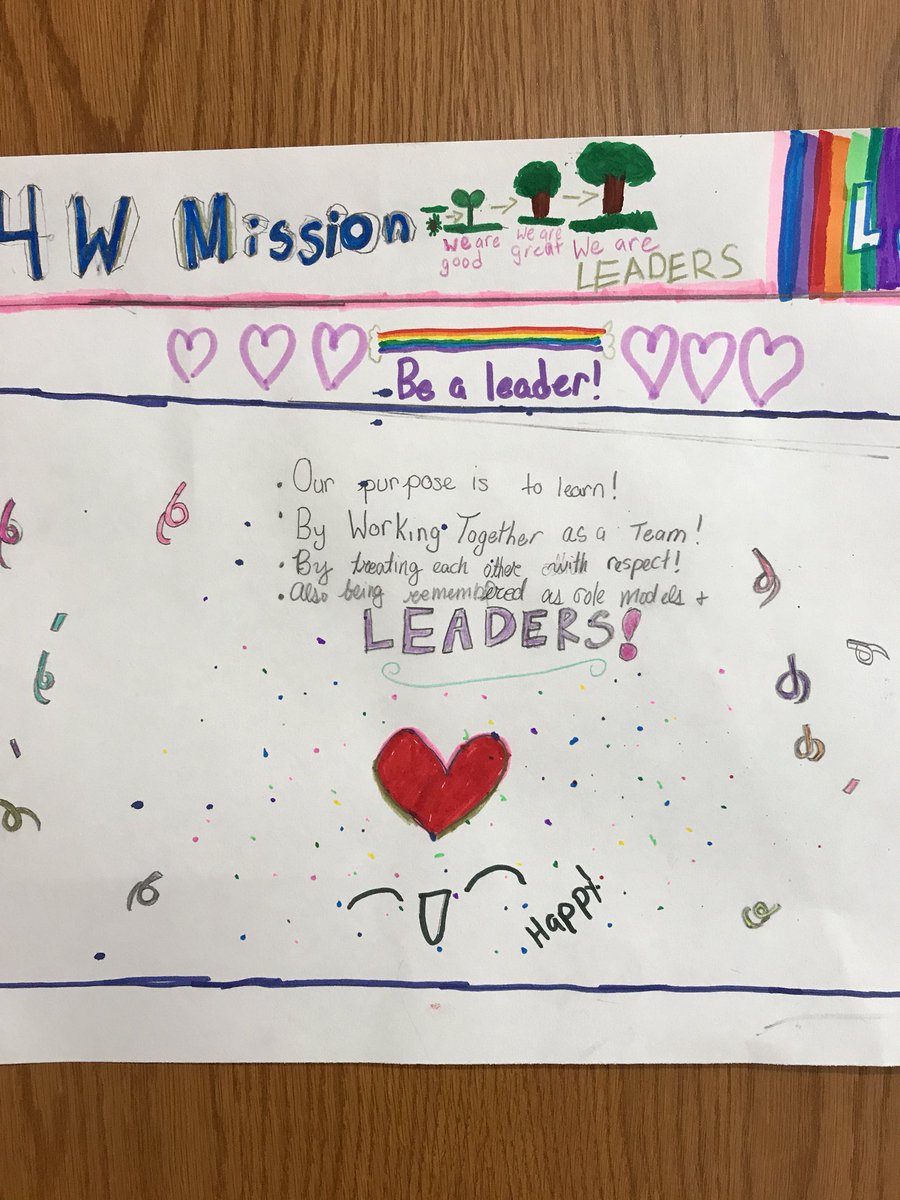 4W Mission
We are good
We are great
We are LEADERS
L
Be a leader!
• Our purpose is to learn!
• By Working Together as a Team!
• By treating each other with respect!
• Also being remembered as role models +
LEADERS!
Happy